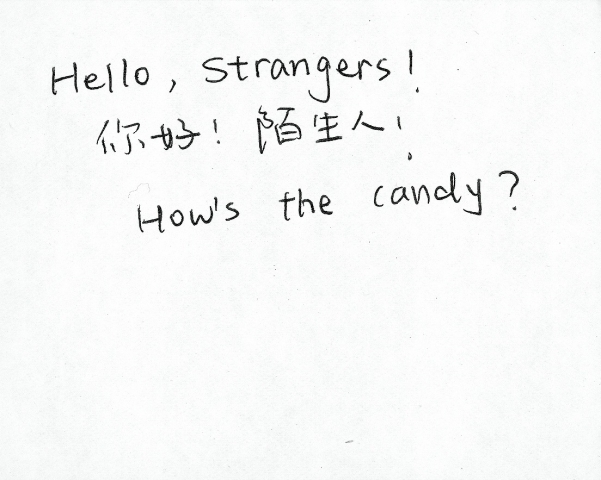 Hello, Strangers!
你好! 陌生人!
How's the candy?